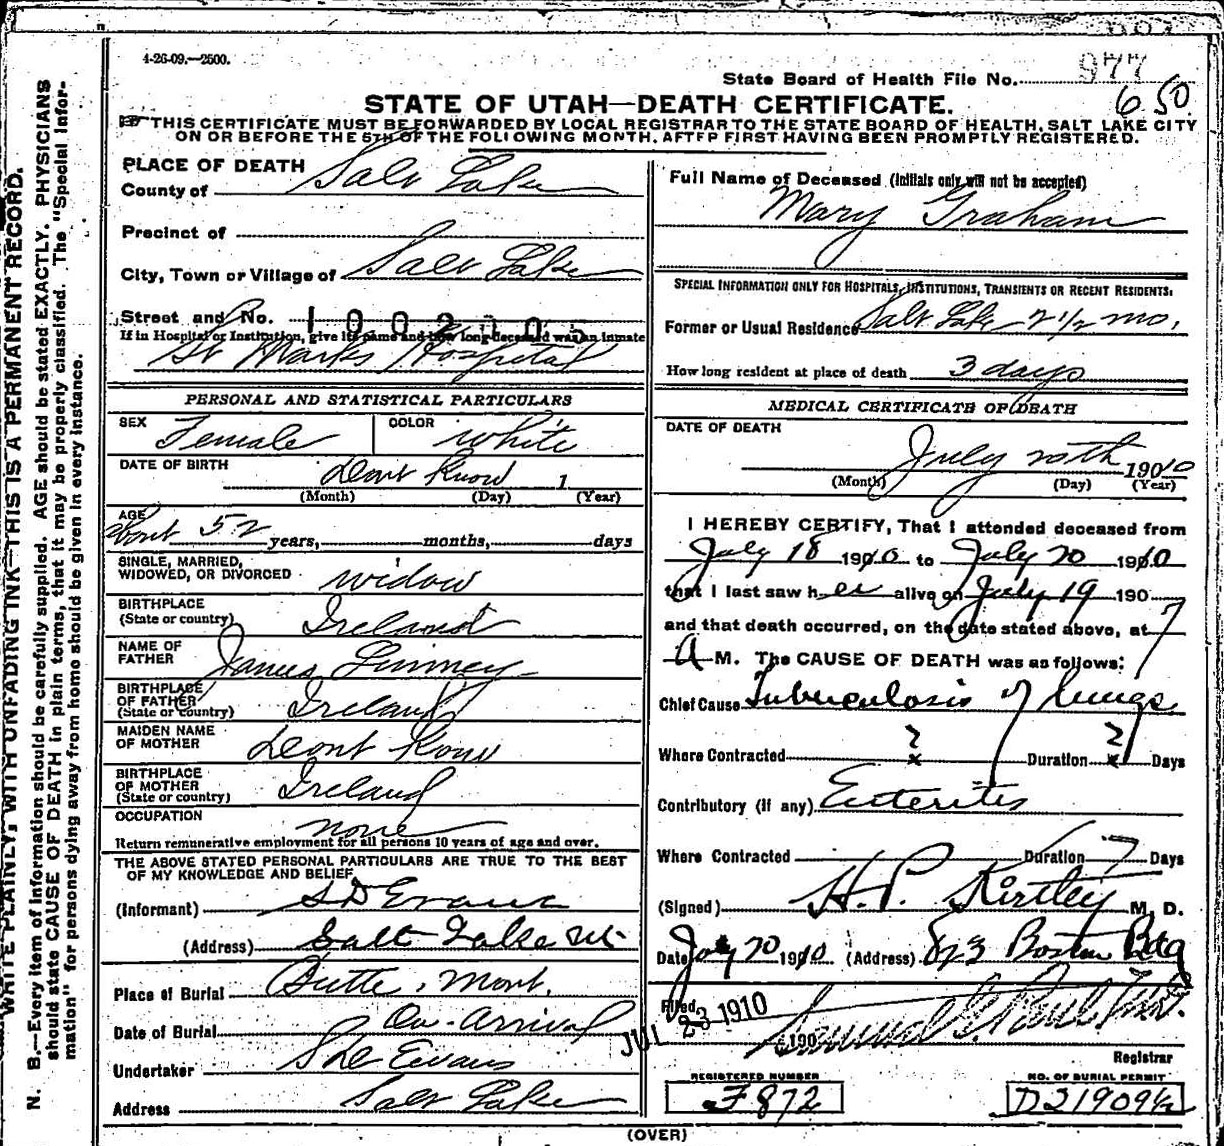 4-26-09.—2500.
State Board of Health File No. 977
650
STATE OF UTAH—DEATH CERTIFICATE.
THIS CERTIFICATE MUST BE FORWARDED BY LOCAL REGISTRAR TO THE STATE BOARD OF HEALTH, SALT LAKE CITY
ON OR BEFORE THE 5TH OF THE FOLLOWING MONTH, AFTER FIRST HAVING BEEN PROMPTLY REGISTERED.
WRITE PLAINLY, WITH UNFADING INK—THIS IS A PERMANENT RECORD.
N. B.—Every item of information should be carefully supplied. AGE should be stated EXACTLY. PHYSICIANS
should state CAUSE OF DEATH in plain terms, that it may be properly classified. The "Special Infor-
mation" for persons dying away from home should be given in every instance.
PLACE OF DEATH
County of Salt Lake
Precinct of
City, Town or Village of Salt Lake
Street and No.
If in Hospital or Institution, give its name and how long deceased was an inmate
St Marks Hospital
PERSONAL AND STATISTICAL PARTICULARS
SEX Female COLOR White
DATE OF BIRTH Dont Know 1
(Month) (Day) (Year)
AGE about 52 years, months, days
SINGLE, MARRIED,
WIDOWED, OR DIVORCED widow
BIRTHPLACE
(State or country) Ireland
NAME OF
FATHER James
BIRTHPLACE
OF FATHER
(State or country) Ireland
MAIDEN NAME
OF MOTHER Dont Know
BIRTHPLACE
OF MOTHER
(State or country) Ireland
OCCUPATION none
Return remunerative employment for all persons 10 years of age and over.
THE ABOVE STATED PERSONAL PARTICULARS ARE TRUE TO THE BEST
OF MY KNOWLEDGE AND BELIEF
(Informant) S D Evans
(Address) Salt Lake Ut
Place of Burial Butte, Mont.
Date of Burial On Arrival
Undertaker S D Evans
Address Salt Lake
Full Name of Deceased (Initials only will not be accepted)
Mary Graham
SPECIAL INFORMATION ONLY FOR HOSPITALS, INSTITUTIONS, TRANSIENTS OR RECENT RESIDENTS:
Former or Usual Residence Salt Lake 2 1/2 mo.
How long resident at place of death 3 days
MEDICAL CERTIFICATE OF DEATH
DATE OF DEATH
July 20th 1910
(Month) (Day) (Year)
I HEREBY CERTIFY, That I attended deceased from
July 18 1910 to July 20 1910
that I last saw her alive on July 19 190
and that death occurred, on the date stated above, at 7
A M. The CAUSE OF DEATH was as follows:
Chief Cause Tuberculosis of lungs
Where Contracted ? Duration ? Days
Contributory (if any) Enteritis
Where Contracted Duration 7 Days
(Signed) H. P. Kirtley M. D.
Date July 20 1910 (Address) Boston Bdg
Filed JUL 23 1910 190
Registrar
REGISTERED NUMBER
F872
NO. OF BURIAL PERMIT
D21909½
(OVER)